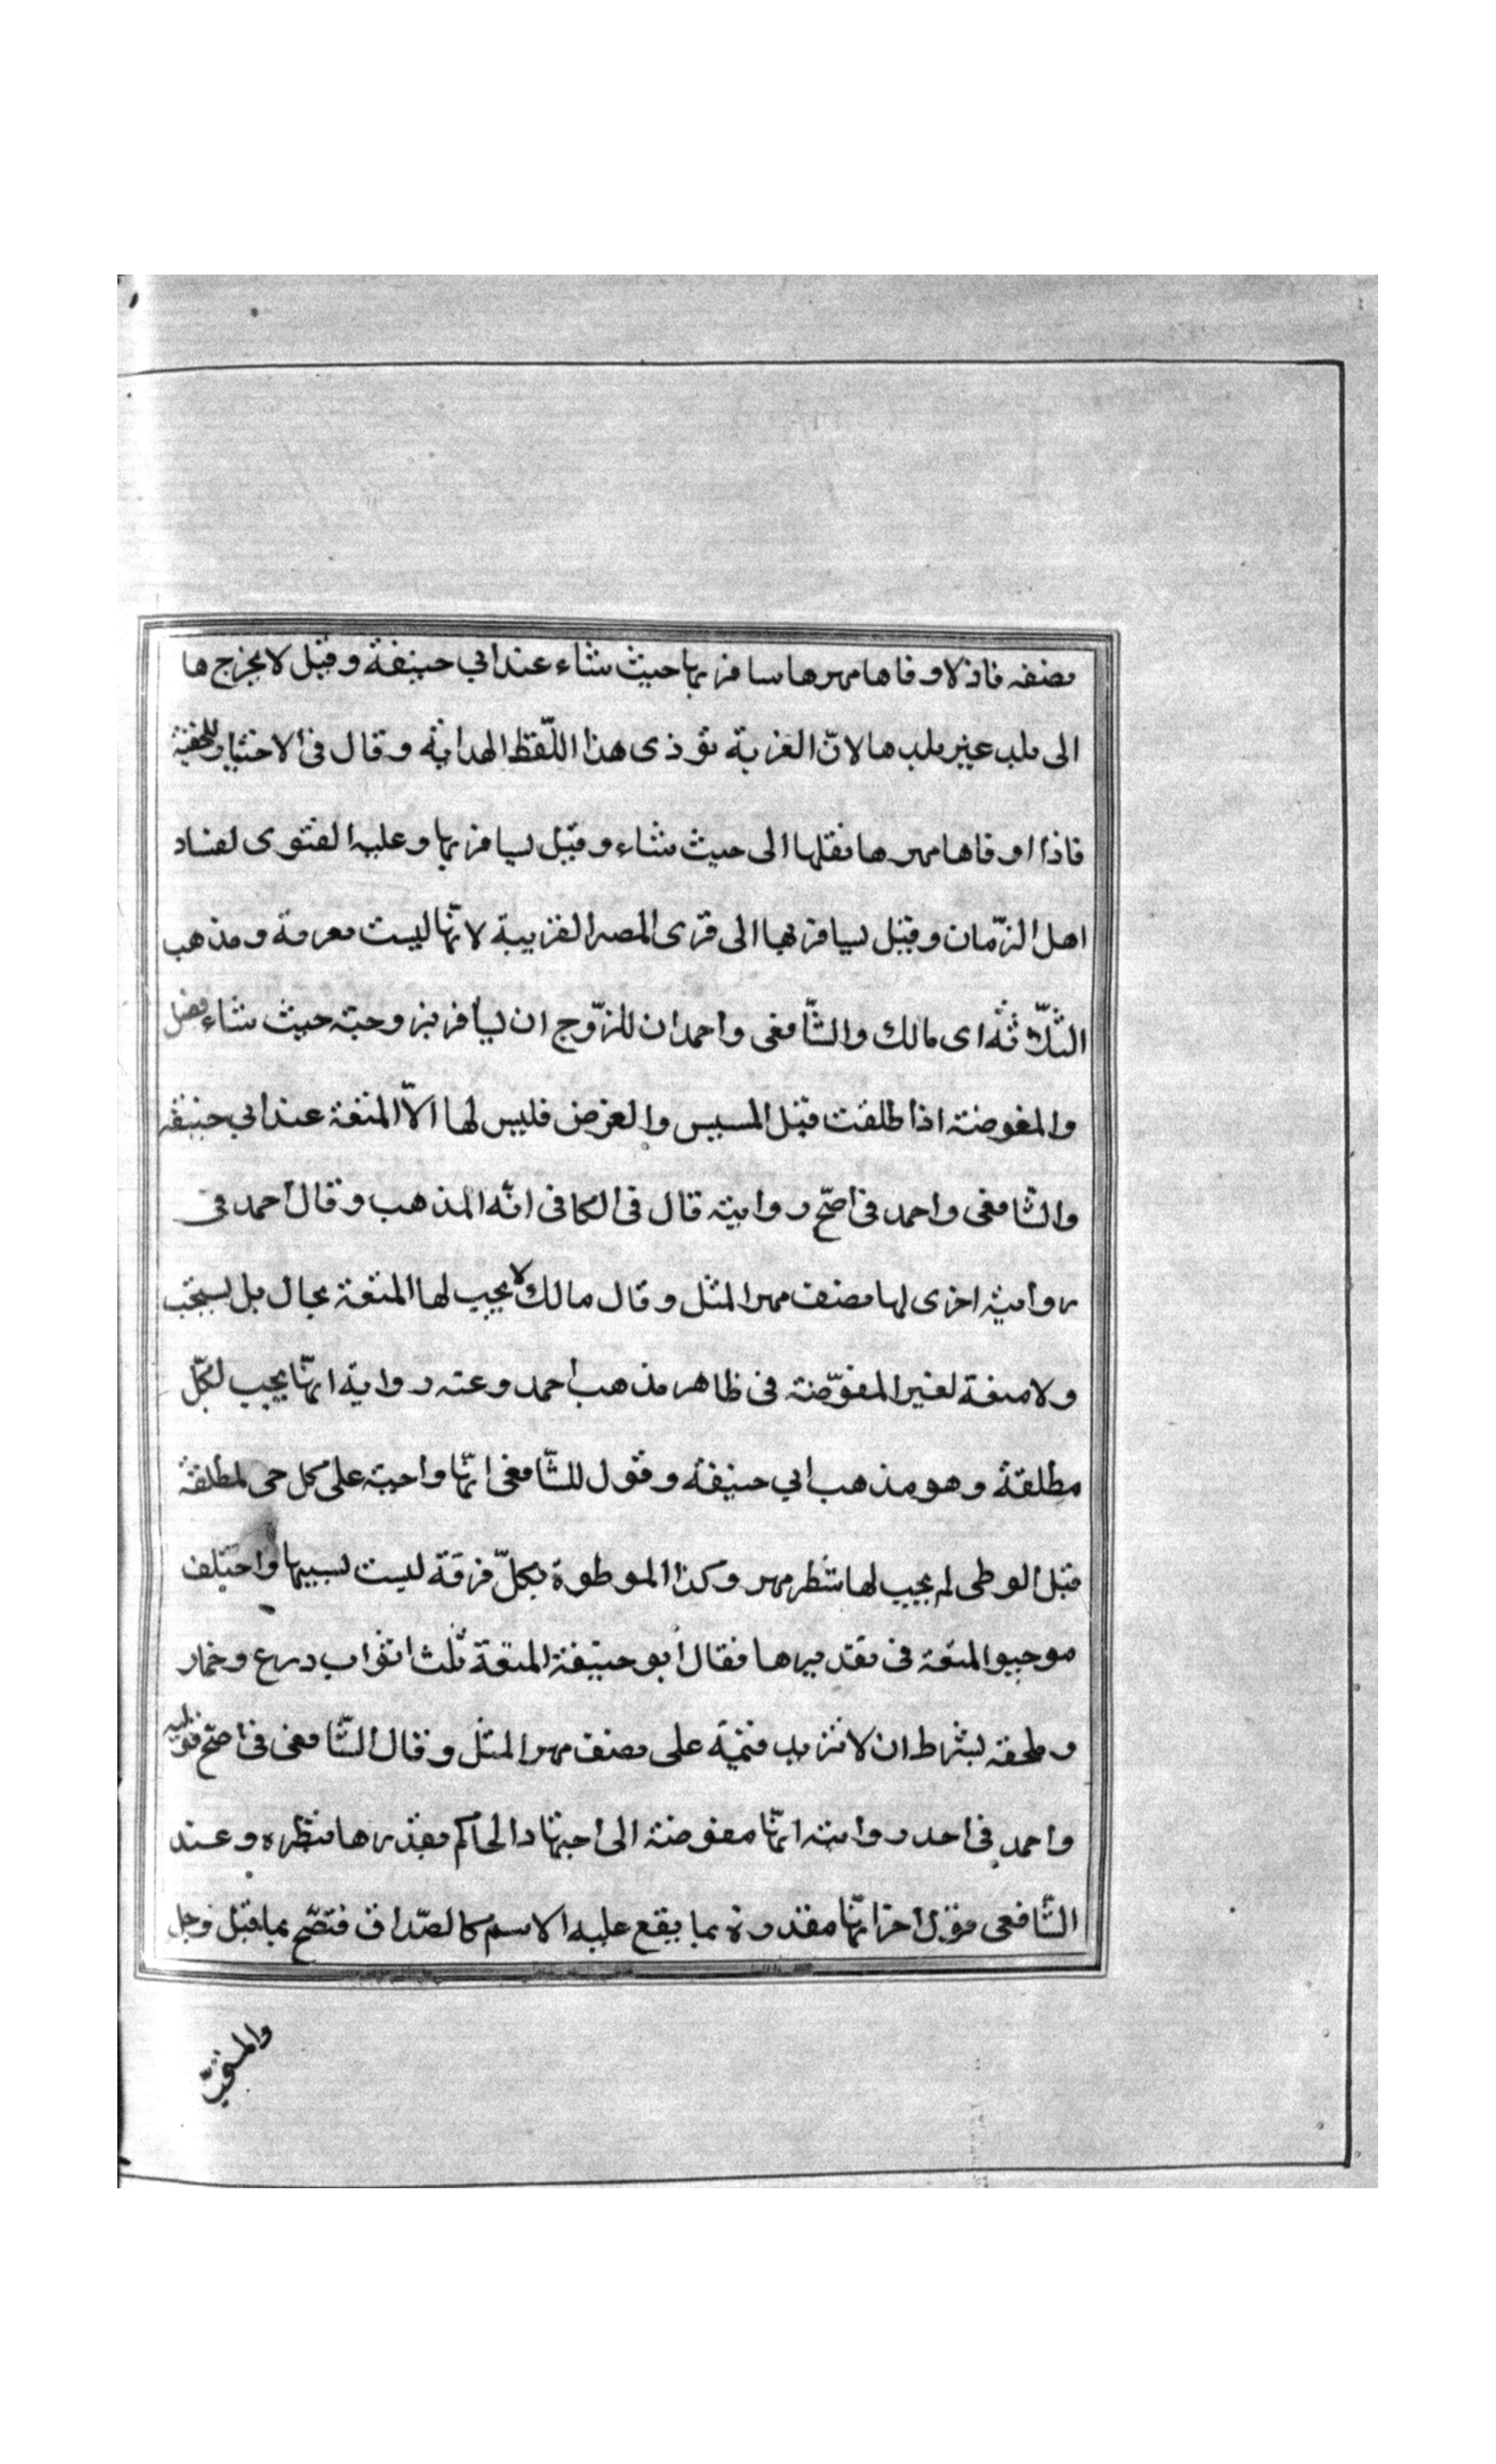 نصفه فاذلاوفاها مهرها سافر بها حيث شاء عند ابي حنيفة وقيل لا يخرج ها
الى بلد غير بلدها لانّ الغربة تؤذى هذا اللّفظ الهداية وقال فى الاختيار للحنفية
فاذا اوفاها مهرها نقلها الى حيث شاء وقيل يسافر بها وعليه الفتوى لفساد
اهل الزّمان وقيل يسافر بها الى قرى المصر القريبة لانّها ليست بغربة ومذهب
الثّلاثة اى مالك والشّافعى واحمد ان للزّوج ان يسافر بزوجته حيث شاء فصل
والمفوضة اذا طلقت قبل المسيس والفرض فليس لها الاّ المتعة عند ابي حنيفة
والشّافعى واحمد فى اصحّ روايته قال فى الكافى انّه المذهب وقال احمد فى
رواية اخرى لها نصف مهر المثل وقال مالك لا يجب لها المتعة بحال بل يستحب
ولا متعة لغير المفوّضة فى ظاهر مذهب احمد وعنه رواية انّها يجب لكلّ
مطلقة وهو مذهب ابي حنيفة وقول للشّافعى انّها واجبة على كل حى لمطلقة
قبل الوطى لم يجب لها شطر مهر وكذا الموطوة بكلّ فرقة ليست بسببها واختلف
موجبوا المتعة فى تقديرها فقال أبو حنيفة المتعة ثلث اثواب درع وخمار
وملحفة بشرط ان لا تزيد قيمة على نصف مهر المثل وقال الشّافعى فى اصحّ قوليه
واحمد فى احد روايته انّها مفوضة الى اجتهاد الحاكم يقدرها بنظره وعند
الشّافعى قول اخر انّها مقدورة بما يقع عليه الاسم كالصّداق فتصّح بما قبل وجل